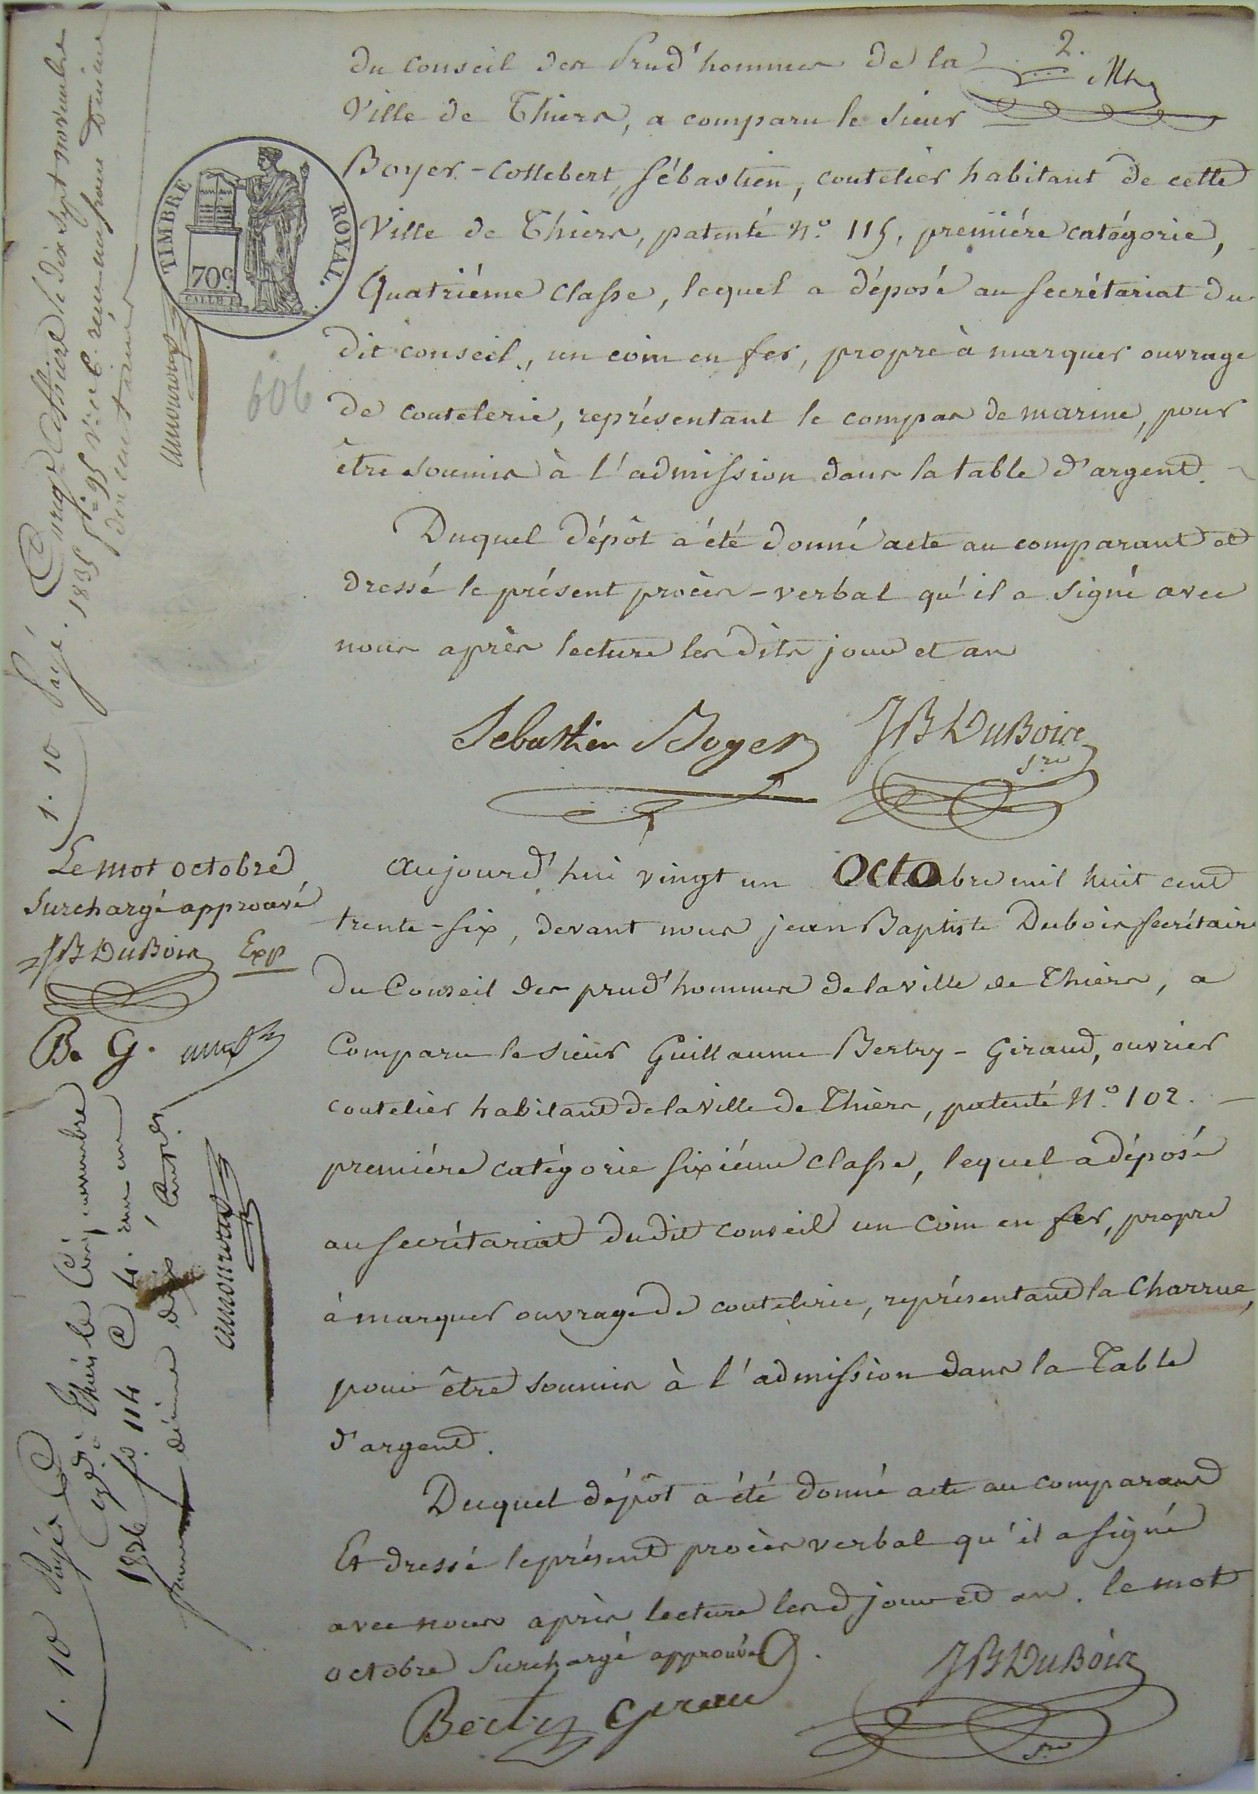 2.
du Conseil des Prud'hommes de la
Ville de Thiers, a comparu le sieur
Boyer-Collebert Sébastien, coutelier habitant de cette
Ville de Thiers, patenté N.° 115, première catégorie,
Quatriéme classe, lequel a déposé au secrétariat du
dit conseil, un coin en fer, propre à marquer ouvrage
de coutelerie, représentant le compas de marine, pour
être soumis à l'admission dans la table d'argent.
Duquel dépôt a été donné acte au comparant et
dressé le présent procès-verbal qu'il a signé avec
nous après lecture les dits jour et an
Sebastien Boyer JB DuBois
Sre
TIMBRE ROYAL.
70c
606
1.10 Payé.
Enregé à Thiers le dix sept novembre
1835 fo 95
dix centimes
Le mot octobre
Surchargé approuvé
JB DuBois Exp
B. G.
aujourd'hui vingt un Octobre mil huit cent
trente-six, devant nous jean Baptiste Dubois secrétaire
du Conseil des prud'hommes de la ville de Thiers, a
Comparu le sieur Guillaume Bertry-Giraud, ouvrier
coutelier habitant de la ville de Thiers, patenté N.° 102.
première catégorie sixième classe, lequel a déposé
au secrétariat dudit conseil un coin en fer, propre
à marquer ouvrage de coutelerie, représentant la Charrue,
pour être soumis à l'admission dans la Table
d'argent.
Duquel dépôt a été donné acte au comparant
Et dressé le présent procès verbal qu'il a signé
avec nous après lecture lesd jour et an. le mot
octobre Surchargé approuvé.
JB DuBois
Sre
1.10 Payé
Thiers le Cinq novembre
1836 fo 114